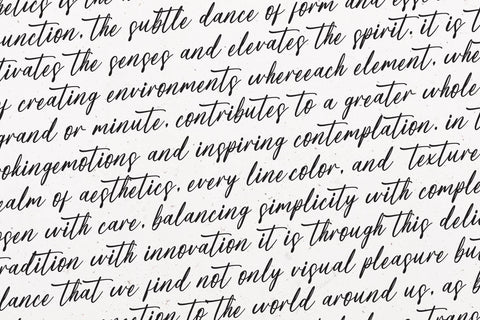 hetics is the
unction. the subtle dance of form and esse
tivates the senses and elevates the spirit. it is t
y creating environments whereeach element. whe
grand or minute. contributes to a greater whole
okingemotions and inspiring contemplation. in t
ealm of aesthetics. every line color. and texture
osen with care. balancing simplicity with comple
radition with innovation it is through this deli
lance that we find not only visual pleasure bu
to the world around us. as b